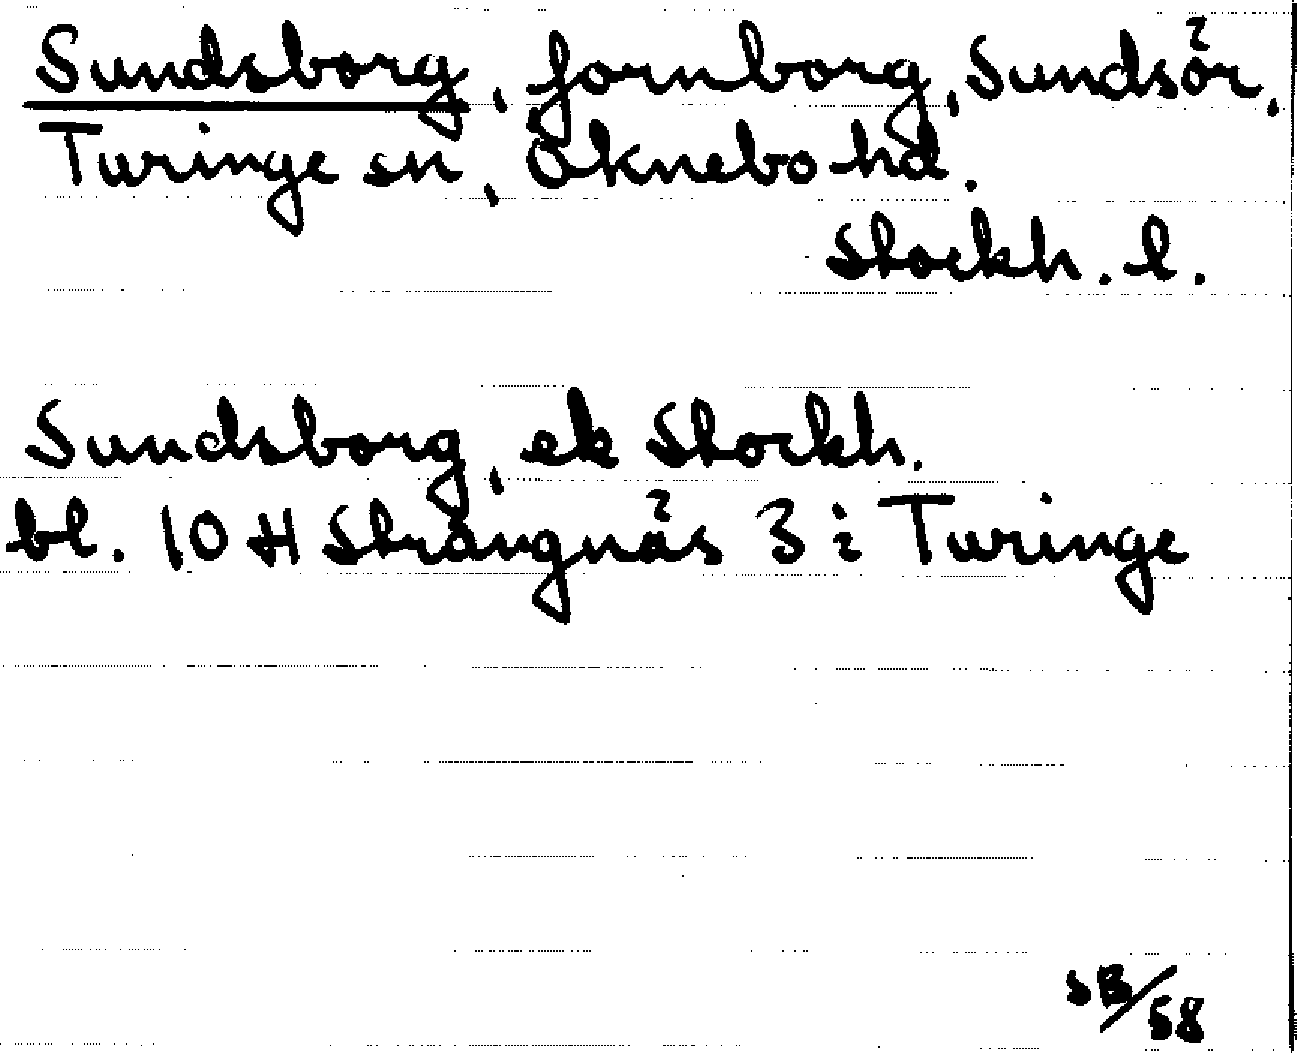 Sundsborg, fornborg, Sundsör,
Turinge sn, Öknebo hd.
Stockh. l.
Sundsborg, ek Stockh.
bl. 10 H Strängnäs 3 i Turinge
SB/58